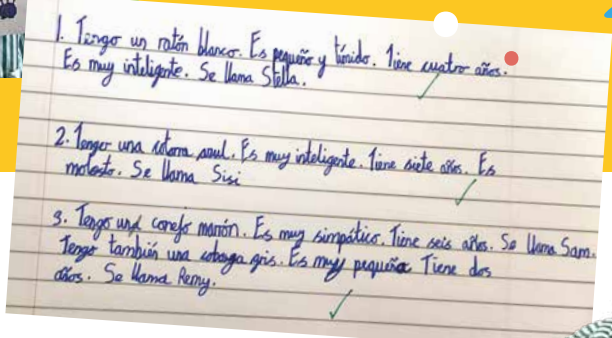 1. Tengo un ratón blanco. Es pequeño y tímido. Tiene cuatro años.
Es muy inteligente. Se llama Stella.
2. Tenger una cotorra azul. Es muy inteligente. Tiene siete años. Es
molesto. Se llama Sisi
3. Tengo una conejo marrón. Es muy simpático. Tiene seis años. Se llama Sam.
Tengo también una cobaya gris. Es muy pequeña Tiene dos
años. Se llama Remy.